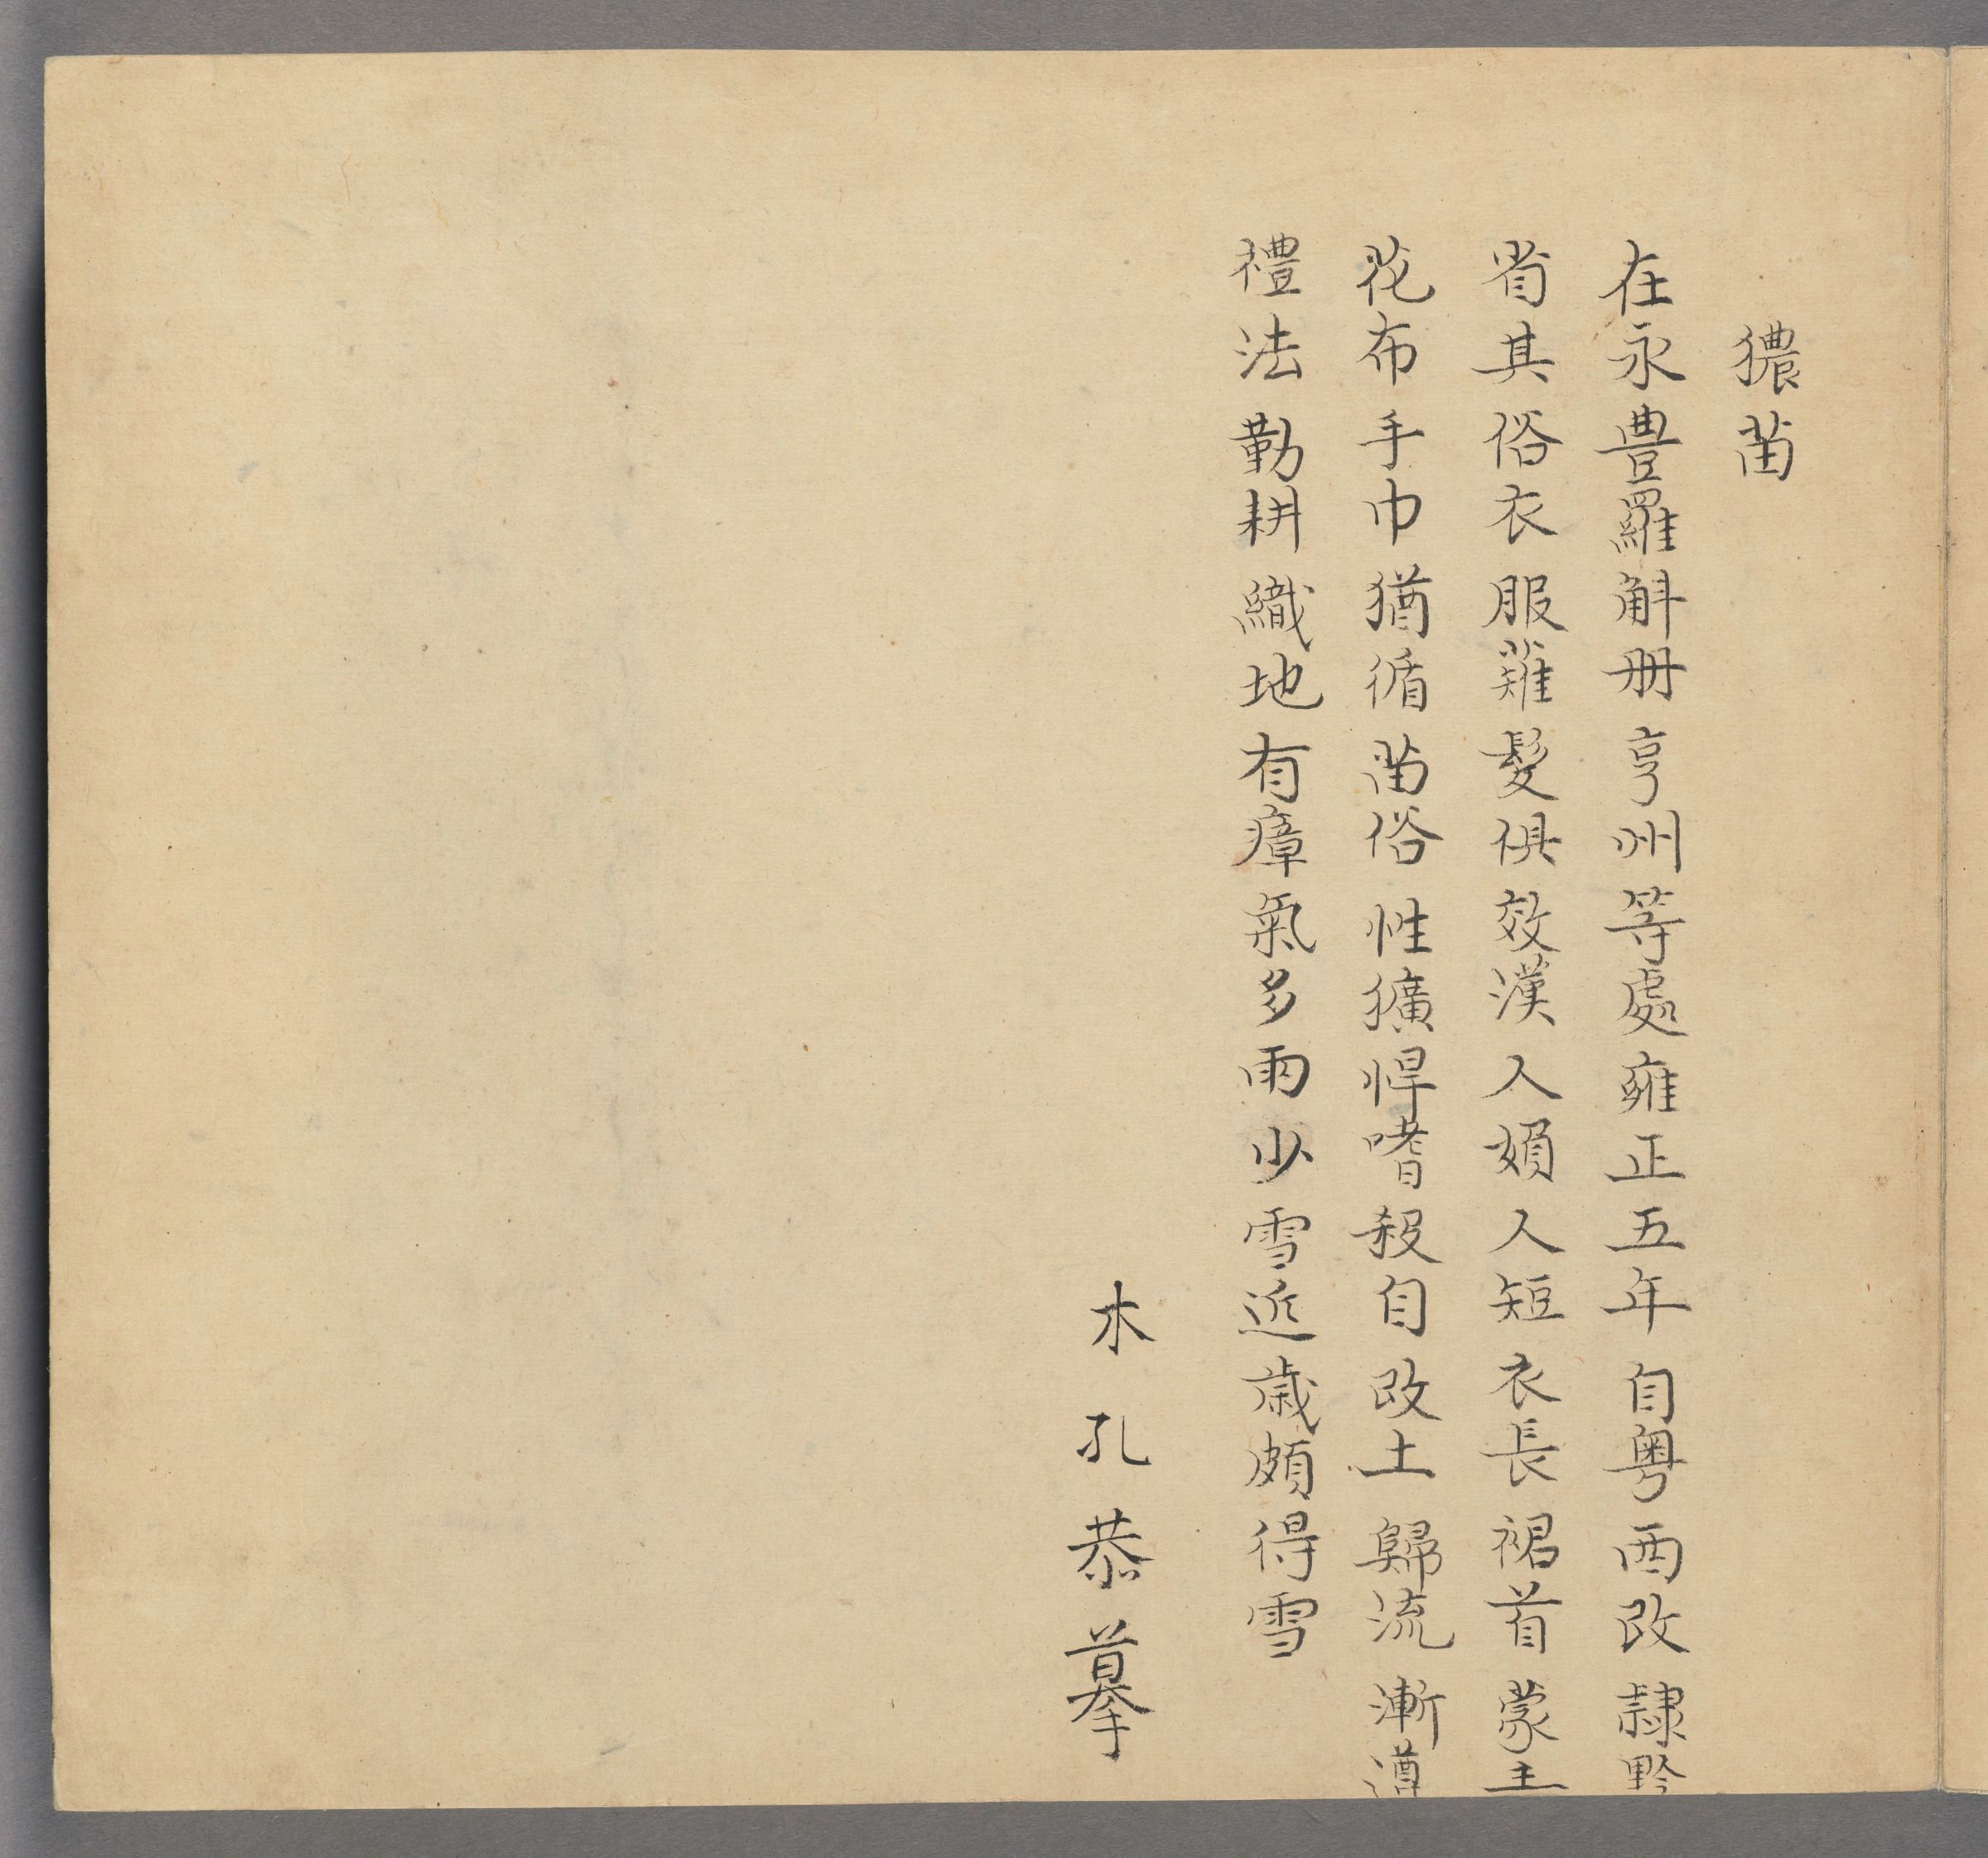 㺜苗
在永豊羅斛册亨州等處雍正五年自粤西改隷黔
省其俗衣服薙髮俱效漢人媍人短衣長裙首蒙青
花布手巾猶循苗俗性獷悍嗜殺自改土歸流漸遵
禮法勤耕織地有瘴氣多雨少雪近歲頗得雪
木孔恭摹